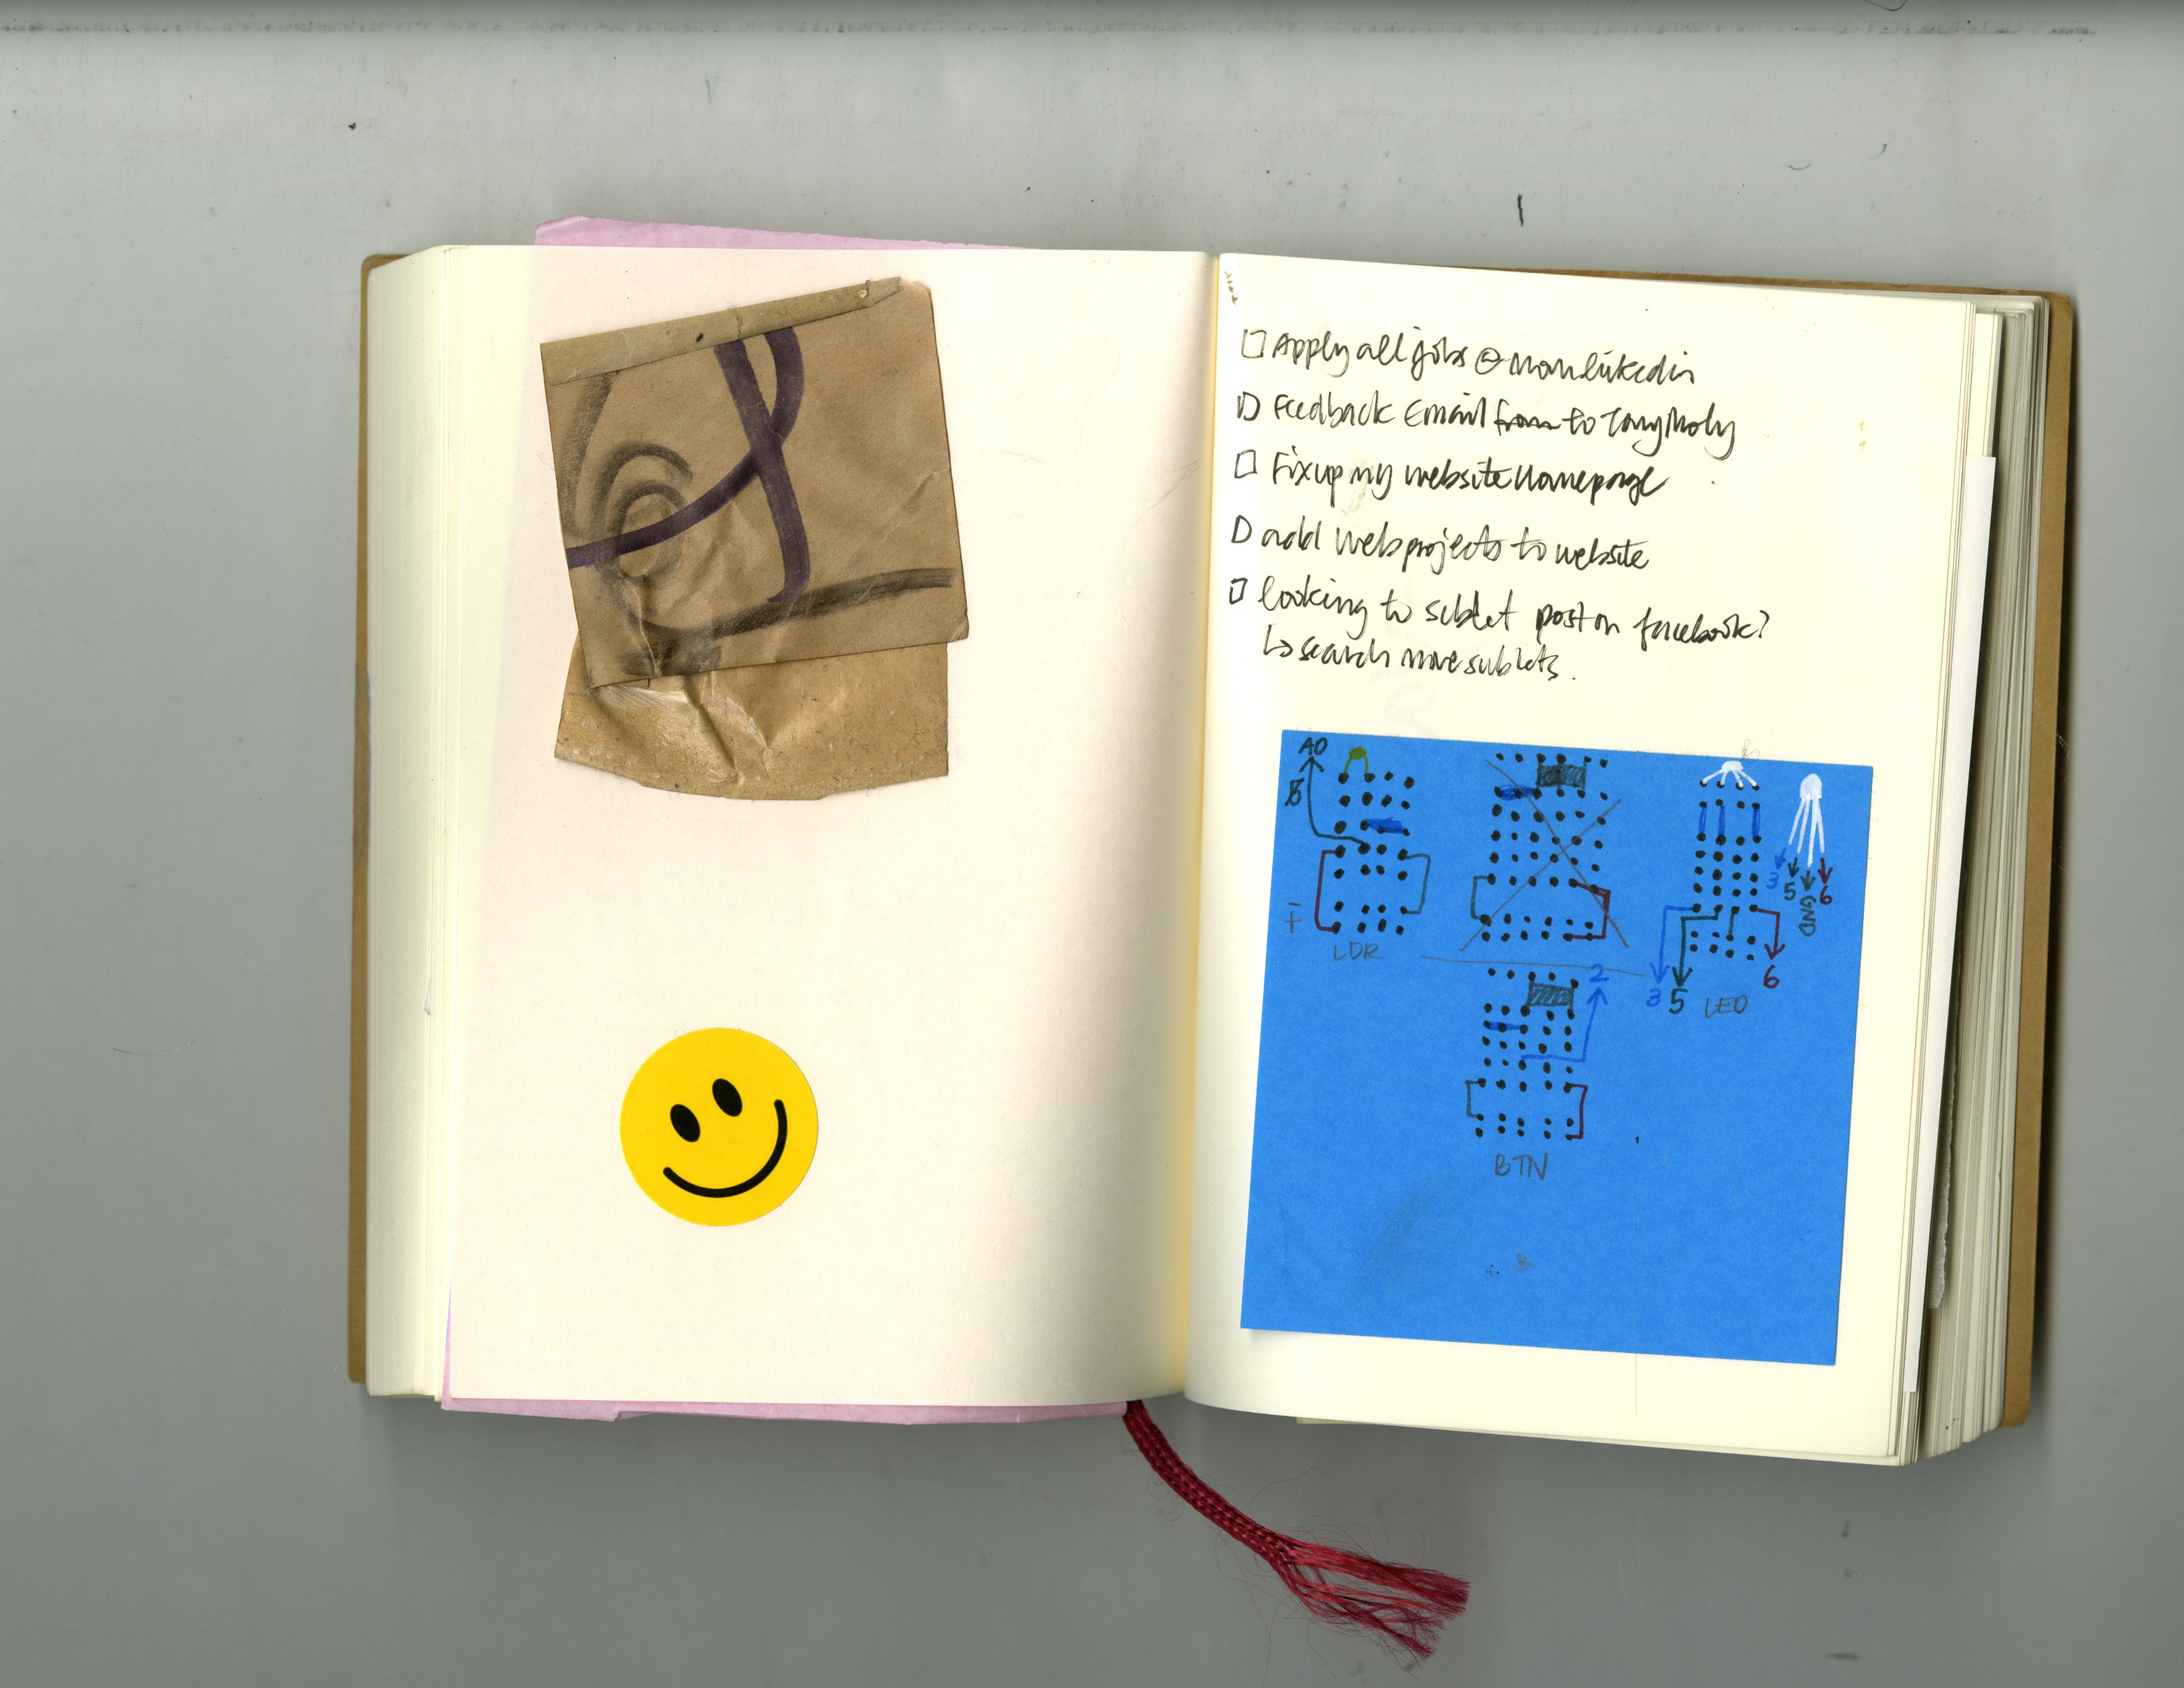 □ Apply all jobs @ linkedin
□ Feedback Email from to
□ Fix up my website homepage
□ add web projects to website
□ looking to sublet post on facebook?
↳ search more sublets.
A0
5
+ -
LDR
2
BTN
3 5 GND 6
6
3 5
LED